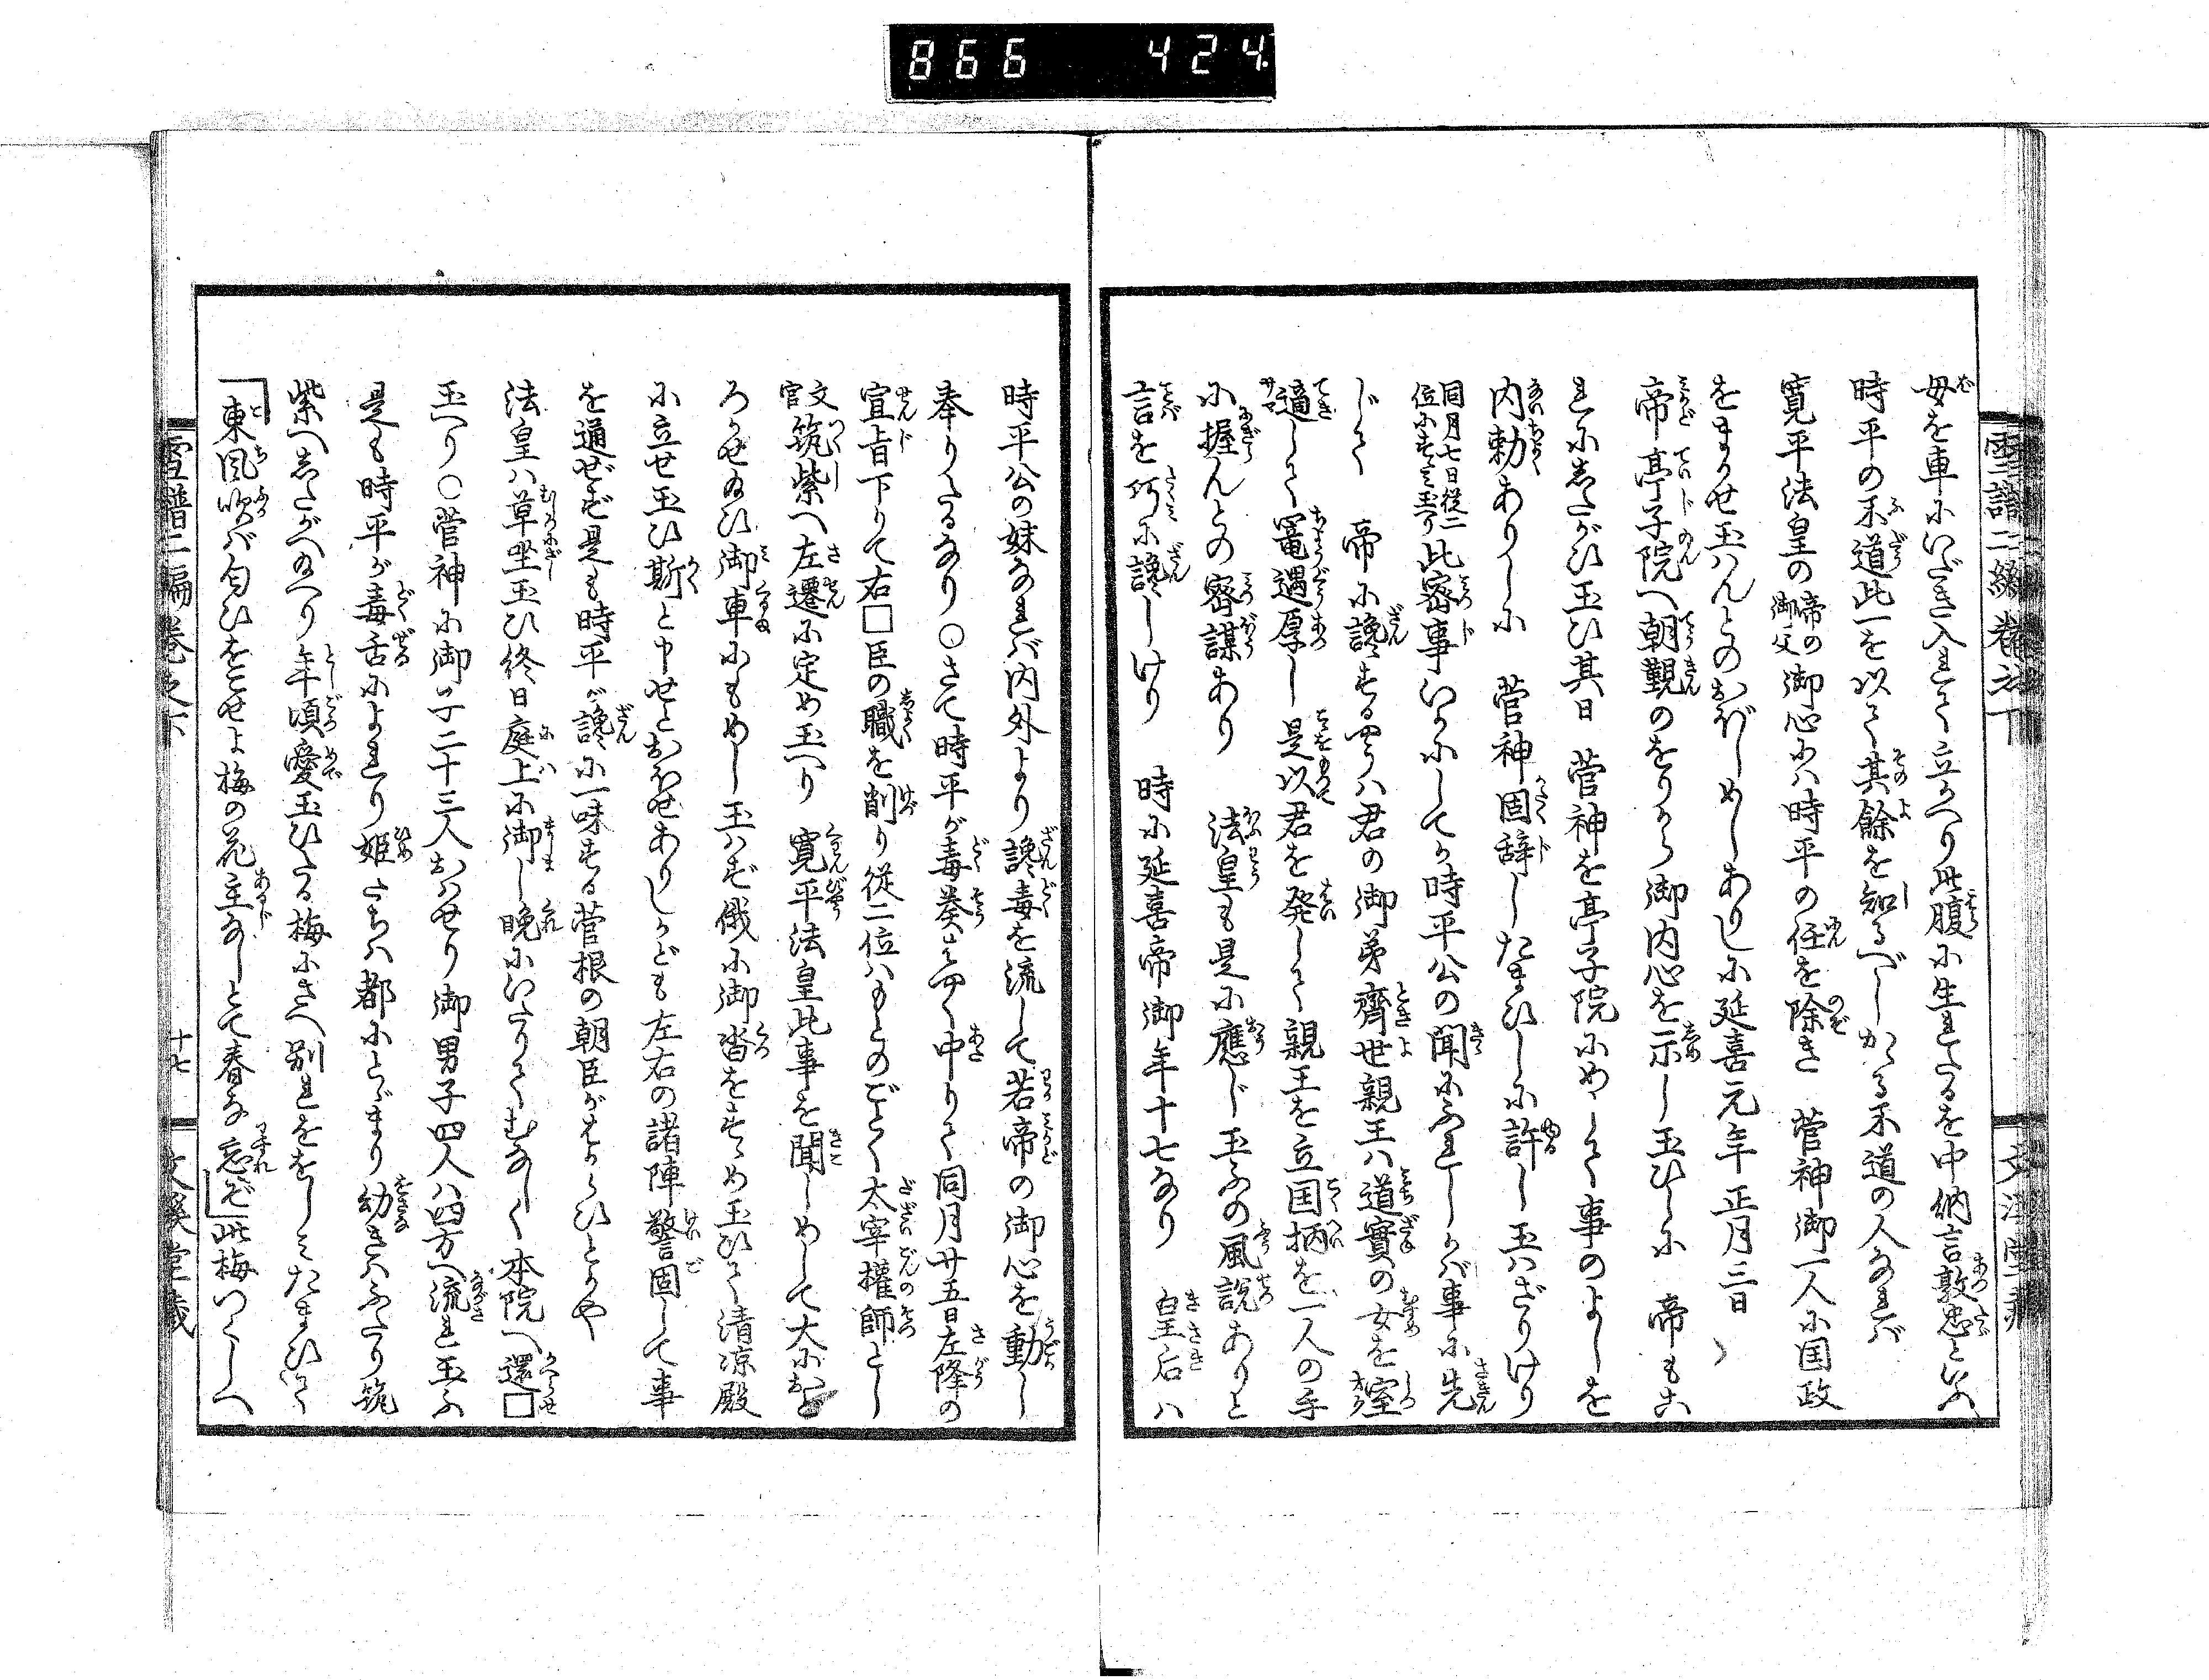 866 424
雪譜二編巻之下 文溪堂蔵
母を車にいだき入れて立かへり此腹に生れたるを中納言敦忠といふ
時平の不道此一を以て其餘を知るべしかゝる不道の人なれば
寛平法皇の帝の御父御心には時平の任を除き 菅神御一人に国政
をまかせ玉はんとのおぼしめしありしに延喜元年正月三日
帝亭子院へ朝覲のをりから御内心を示し玉ひしに 帝もこ
れにしたがひ玉ひ其日 菅神を亭子院にめして事のよしを
内勅ありしに 菅神固辞したまひしに許し玉はざりけり
同月七日従二位にすゝみ玉り此密事いかにしてか時平公の聞にふれしかば事に先
じて 帝に讒するやうは君の御弟齊世親王は道實の女を室
適して寵遇厚し是以君を発して親王を立国柄を一人の手
に握んとの密謀あり 法皇も是に應じ玉ふの風説ありと
言を巧に讒しけり 時に延喜帝御年十七なり 皇后は
時平公の妹なれば内外より讒毒を流して若帝の御心を動し
奉りたるなり○さて時平が毒奏はやく中りて同月廿五日左降の
宣旨下りて右□臣の職を削り従二位はもとのごとく太宰權師とし
文官筑紫へ左遷に定め玉へり 寛平法皇此事を聞しめして大にお
ろかせ給ひ御車にもめし玉はず俄に御沓をすゝめ玉ひて清凉殿
に立せ玉ひ斯と申せとおほせありしかども左右の諸陣警固して事
を通ぜず是も時平が讒に一味する菅根の朝臣がはからひとかや
法皇は草坐玉ひ終日庭上に御し晩にいたりてむなしく本院へ還□
玉へり○菅神に御子二十三人おはせり御男子四人は四方へ流れ玉ふ
是も時平が毒舌によれり姫たちは都にとゞまり幼きはふたり筑
紫へしたがへ給へり年頃愛玉ひたる梅にさへ別れををしみたまひて
「東風吹ば匂ひをこせよ梅の花主なしとて春な忘ぞ」此梅つくしへ
雪譜二編巻之下 十七 文溪堂蔵